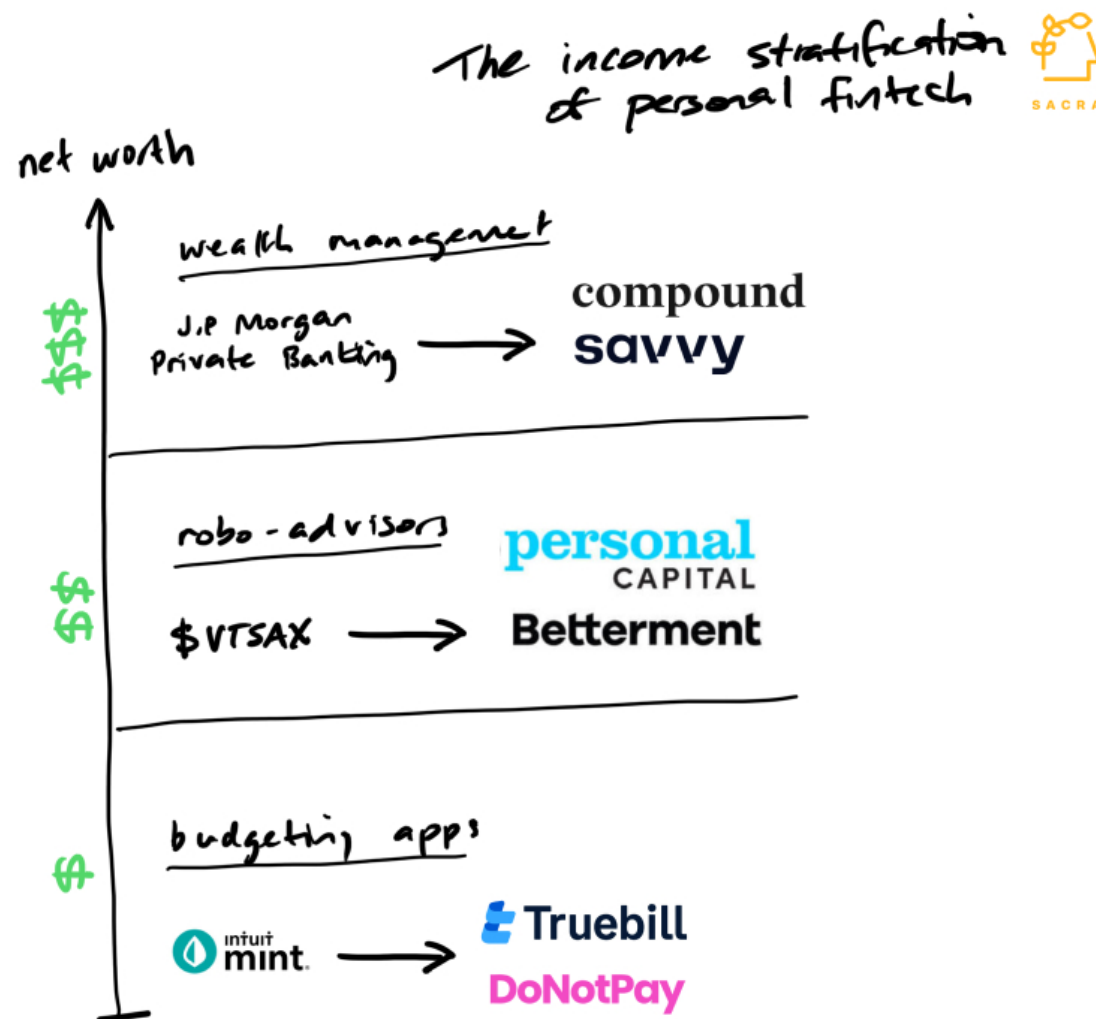 The income stratification
of personal fintech
SACRA
net worth
wealth management
$$$
J.P Morgan
Private Banking
compound
savvy
robo-advisors
$$
$VTSAX
personal
CAPITAL
Betterment
budgeting apps
$
intuit
mint.
Truebill
DoNotPay